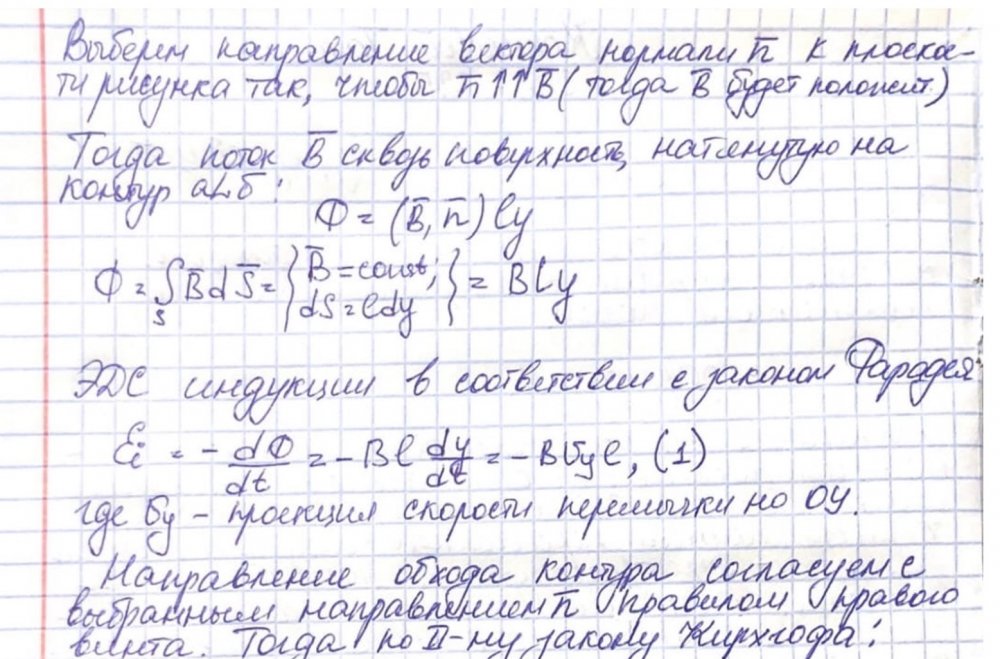 Выберем направление вектора нормали n̅ к плоскос-
ти рисунка так, чтобы n̅↑↑B̅ (тогда B̅ будет положит)
Тогда поток B̅ сквозь поверхность, натянутую на
контур aLб:
Ф = (B̅, n̅) ly
Ф = ∫_S B̅dS̅ = {B̅ = const; dS = ldy} = Bly
ЭДС индукции в соответствии с законом Фарадея
ℰi = -dФ/dt = -Bl dy/dt = -Bυyl, (1)
где υy - проекция скорости перемычки на ОУ.
Направление обхода контура согласуем с
выбранным направлением n̅ правилом правого
винта. Тогда по II-му закону Кирхгофа: